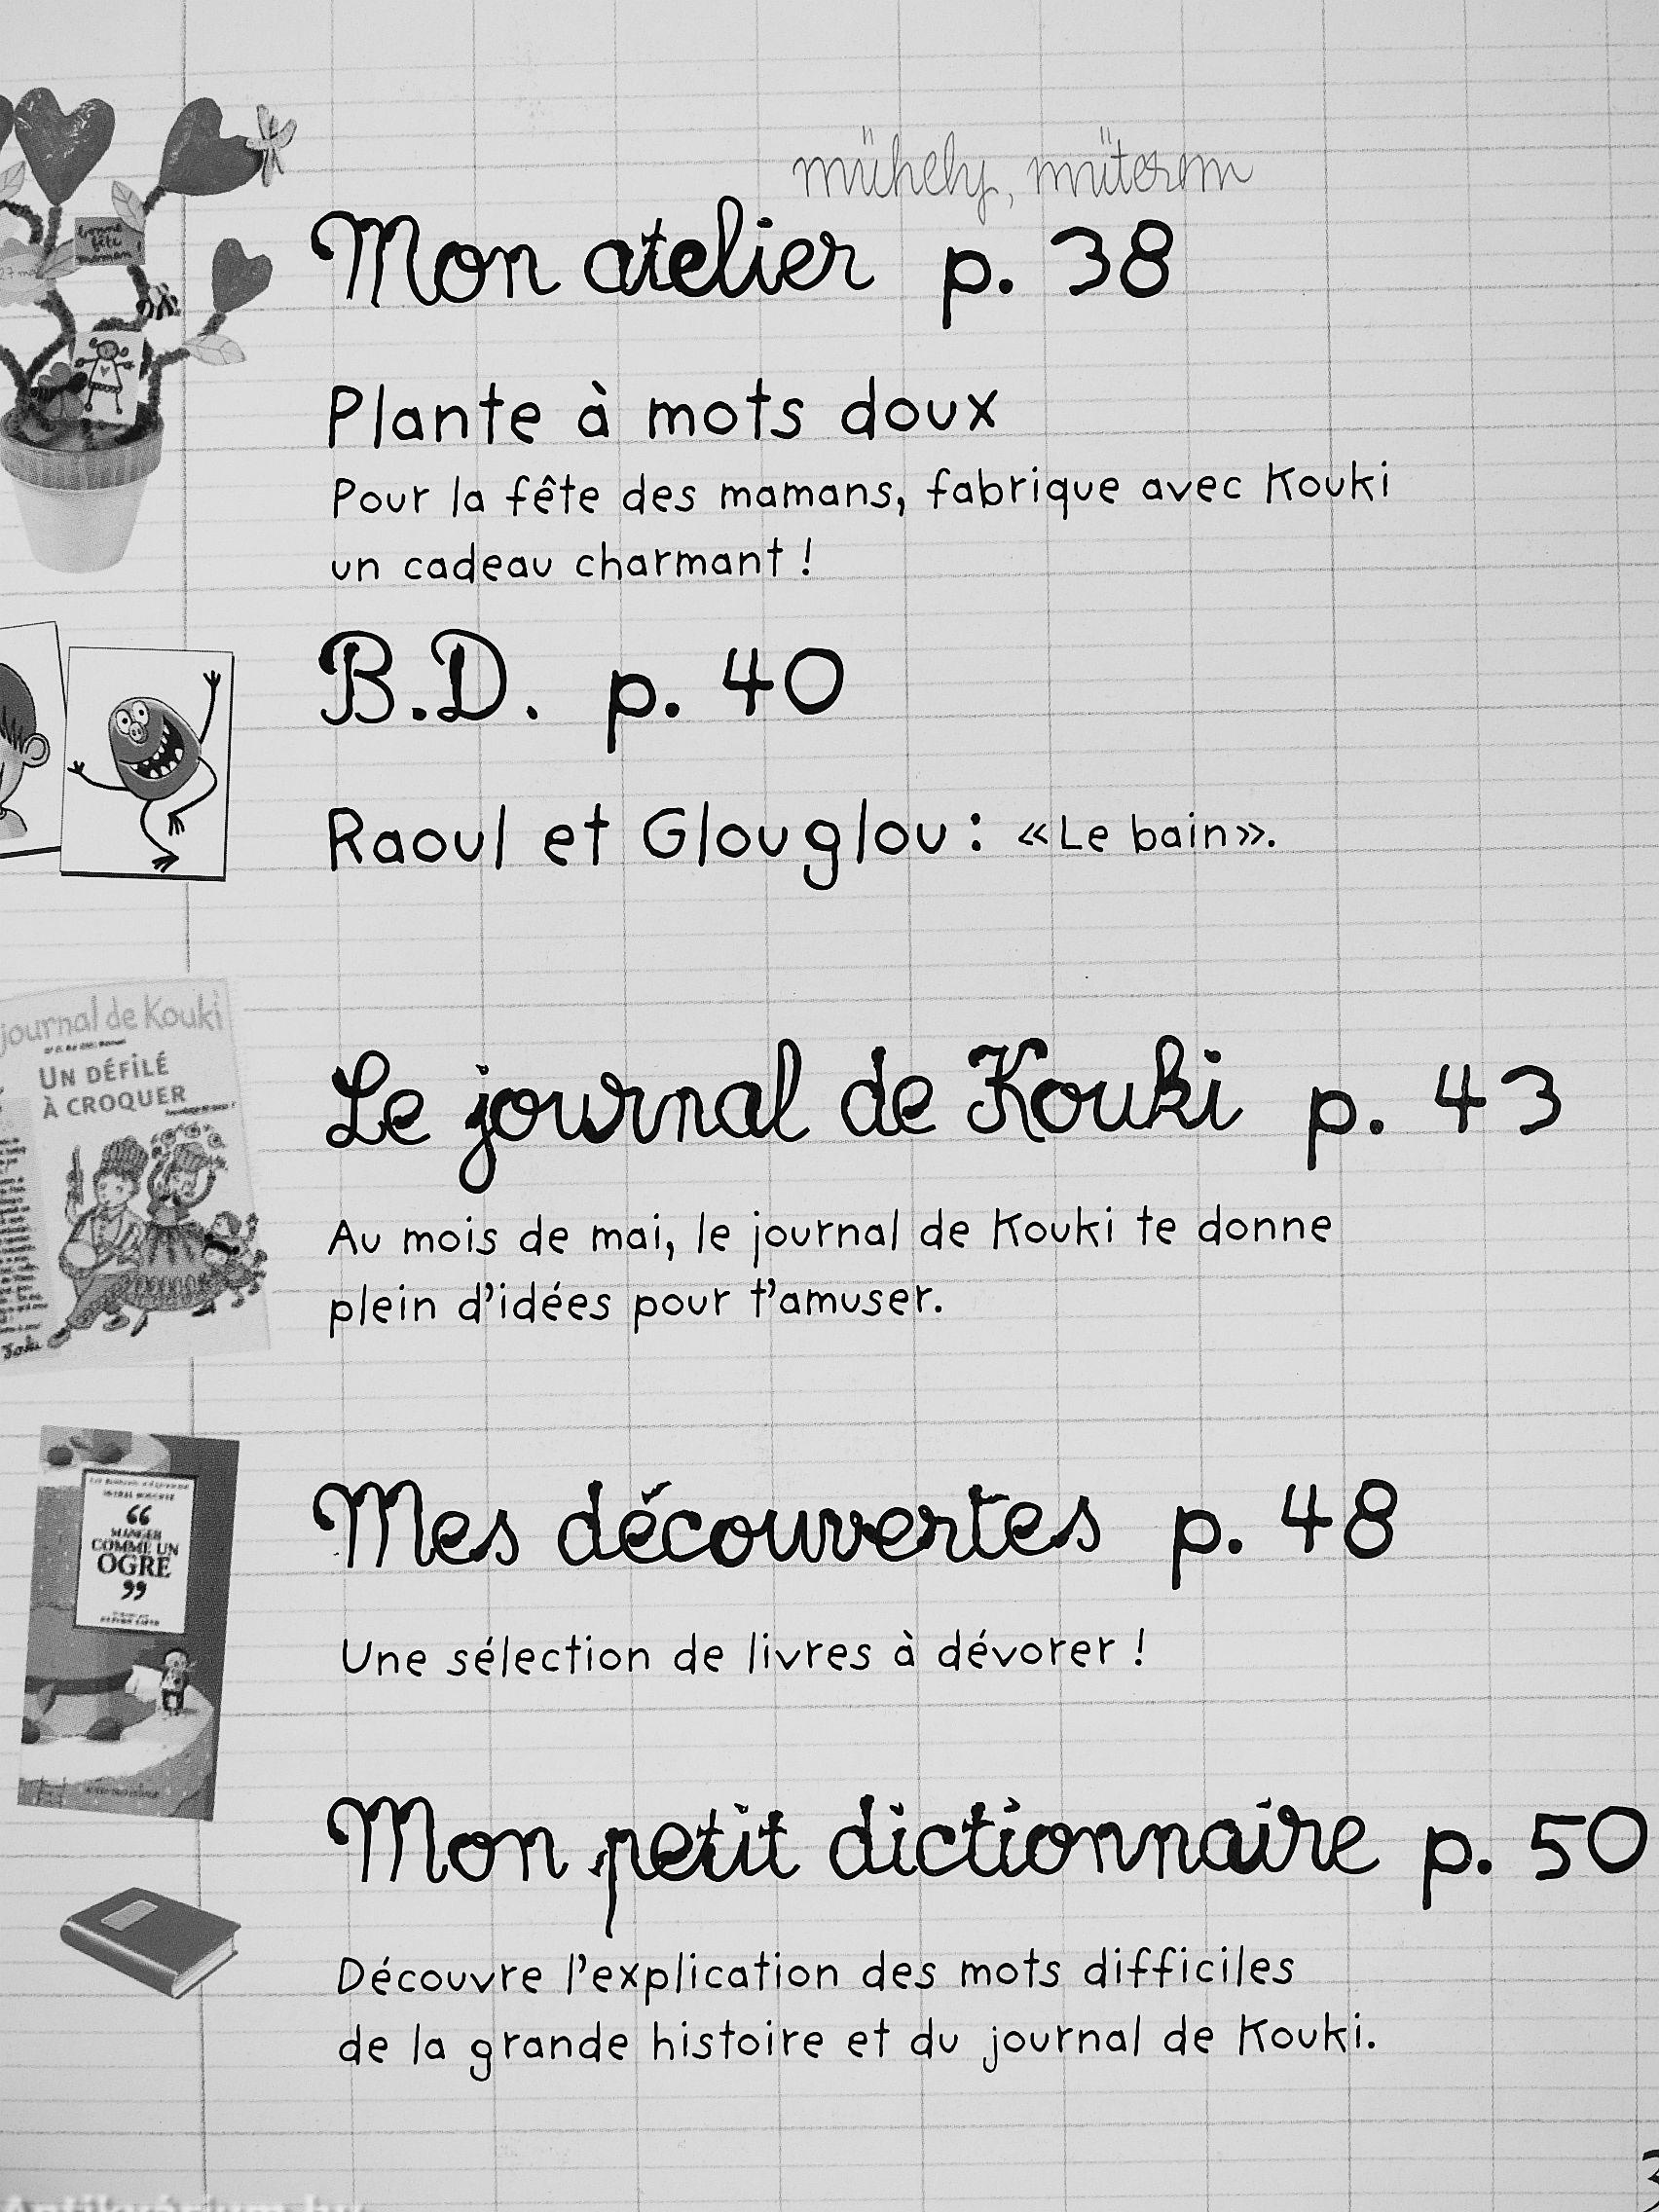 műhely, műterem
Mon atelier p. 38
Plante à mots doux
Pour la fête des mamans, fabrique avec Kouki
un cadeau charmant !
Bonne
fête
maman !
B.D. p. 40
Raoul et Glouglou : «Le bain».
journal de Kouki
UN DÉFILÉ
À CROQUER
Le journal de Kouki p. 43
Au mois de mai, le journal de Kouki te donne
plein d'idées pour t'amuser.
Mes découvertes p. 48
Une sélection de livres à dévorer !
“
MANGER
COMME UN
OGRE
”
Mon petit dictionnaire p. 50
Découvre l'explication des mots difficiles
de la grande histoire et du journal de Kouki.